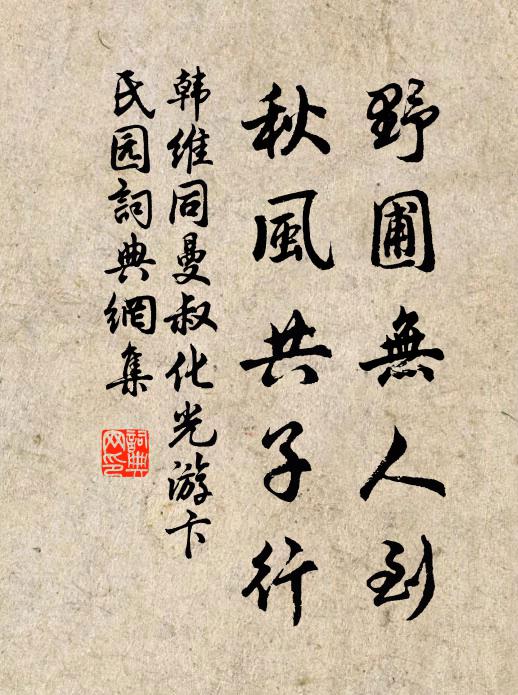 野圃無人到
秋風共子行
韩維同曼叔化光游卞
民园詞典網集
詞典
网印